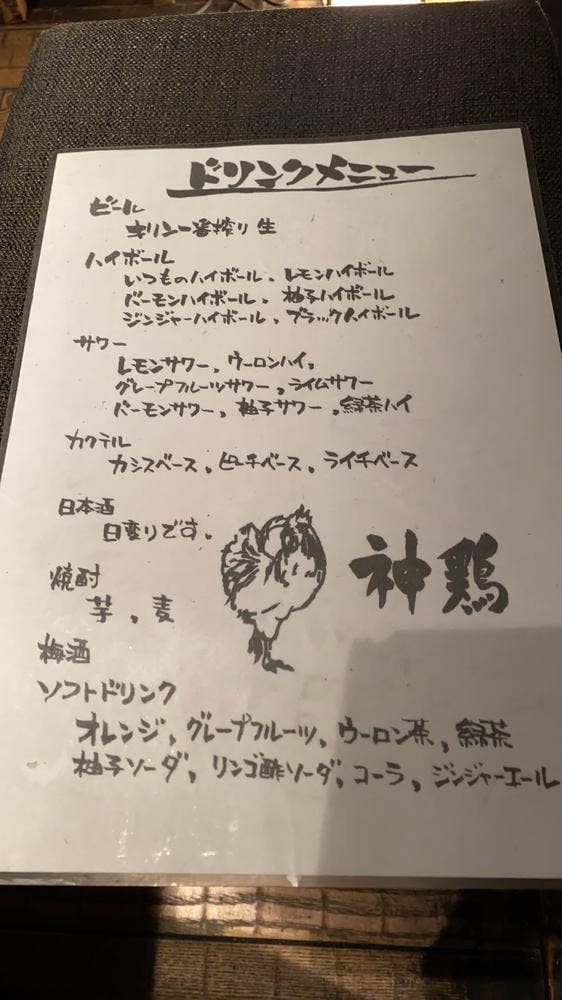 ドリンクメニュー
ビール
キリン一番搾り 生
ハイボール
いつものハイボール、レモンハイボール
バーモンハイボール、柚子ハイボール
ジンジャーハイボール、ブラックハイボール
サワー
レモンサワー、ウーロンハイ、
グレープフルーツサワー、ライムサワー
バーモンサワー、柚子サワー、緑茶ハイ
カクテル
カシスベース、ピーチベース、ライチベース
日本酒
日変りです。
焼酎
芋、麦
神鶏
梅酒
ソフトドリンク
オレンジ、グレープフルーツ、ウーロン茶、緑茶
柚子ソーダ、リンゴ酢ソーダ、コーラ、ジンジャーエール